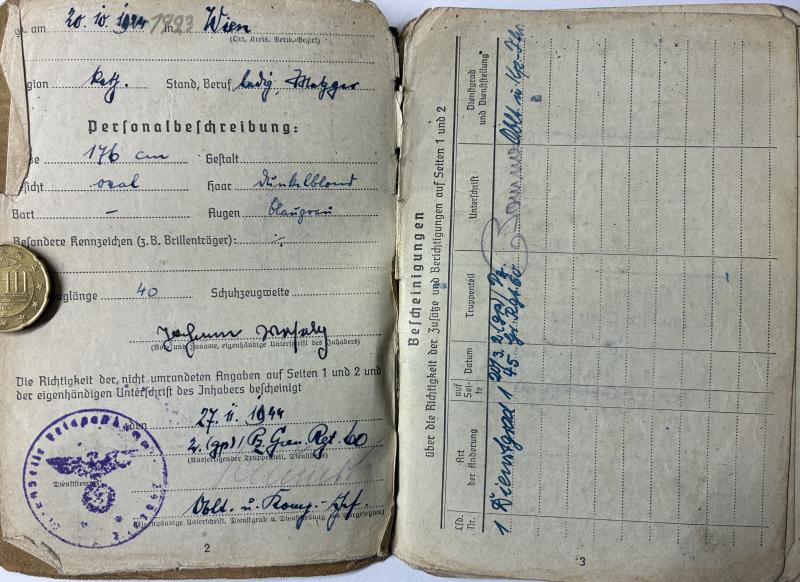 am 20.10.1944 1923 in Wien
(Ort, Kreis, Verw.-Bezirk)
gion kath. Stand, Beruf ledig, Metzger
Personalbeschreibung:
176 cm Gestalt
sicht oval Haar dunkelblond
Bart – Augen blaugrau
Besondere Kennzeichen (z.B. Brillenträger): ·/·
uglänge 40 Schuhzeugweite
Johann
(Vor- und Zuname, eigenhändige Unterschrift des Inhabers)
Die Richtigkeit der nicht umrandeten Angaben auf Seiten 1 und 2 und
der eigenhändigen Unterschrift des Inhabers bescheinigt
den 27.11.1944
2.(gp)/Pz.Gren.Rgt. 60
(Ausfertigender Truppenteil, Dienststelle)
Dienststempel
Oblt. u. Komp.-Chef.
(Eigenhändige Unterschrift, Dienstgrad u. Dienststellung des Vorgesetzten)
2
Bescheinigungen
über die Richtigkeit der Zusätze und Berichtigungen auf Seiten 1 und 2
Lfd. Nr.
Art der Änderung
auf Seite
Datum
Truppenteil
Unterschrift
Dienstgrad und Dienststellung
1 Dienstgrad 1 20/3. 45. 2.(gp)/Pz. Gr. Rgt. 60 Oblt. u. Kp.
3